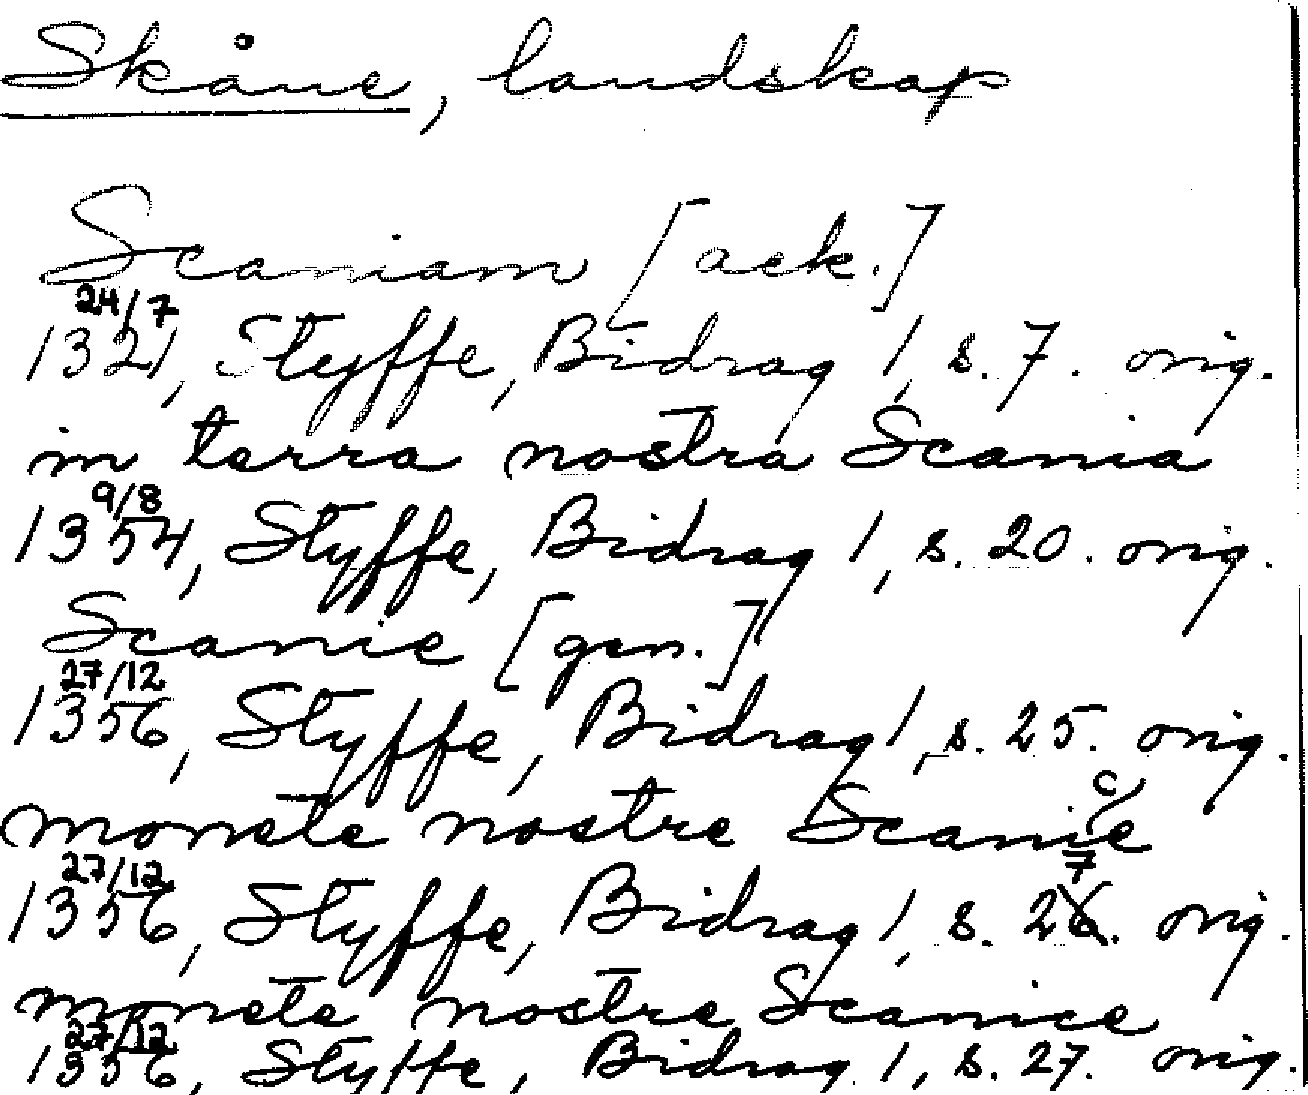 Skåne, landskap
Scaniam [ack.]
24/7
1321, Styffe, Bidrag 1, s. 7. orig.
in terra nostra Scania
9/8
1354, Styffe, Bidrag 1, s. 20. orig.
Scanie [gen.]
27/12
1356, Styffe, Bidrag 1, s. 25. orig.
c
monete nostre Scanie
27/12 7
1356, Styffe, Bidrag 1, s. 26. orig.
monete nostre Scanice
27/12
1356, Styffe, Bidrag 1, s. 27. orig.